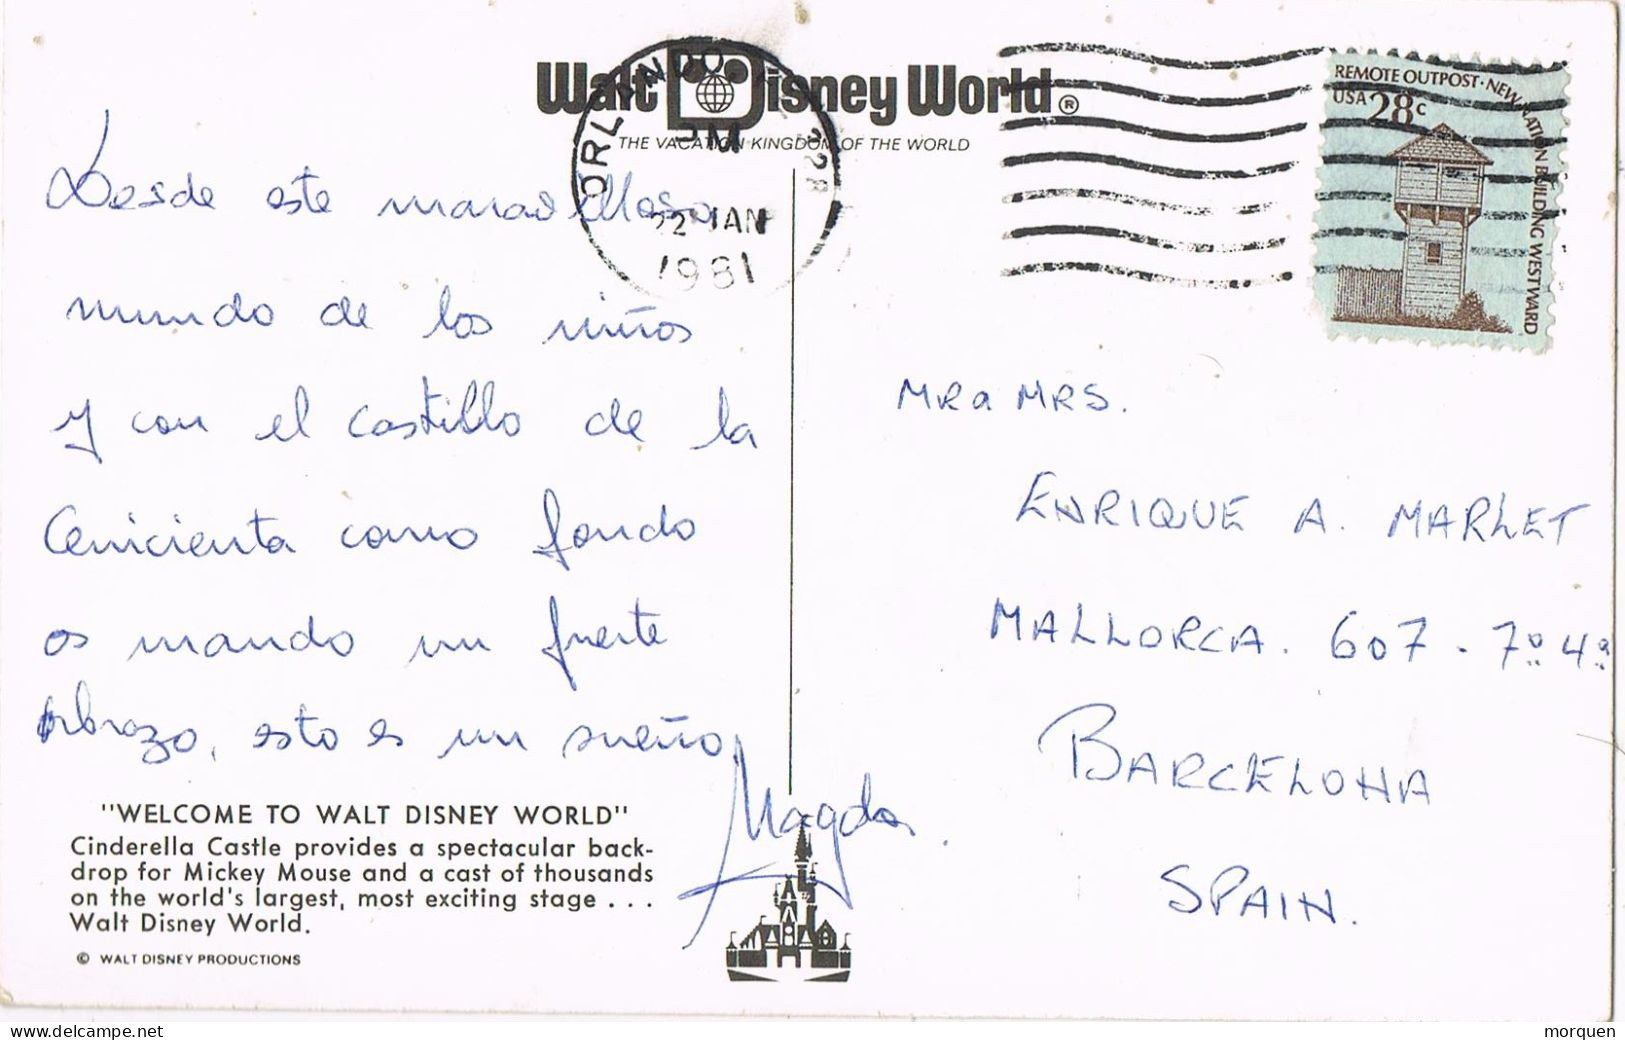 Walt Disney World®
THE VACATION KINGDOM OF THE WORLD
ORLANDO
PM
22 JAN
1981
REMOTE OUTPOST·NEW NATION BUILDING WESTWARD
USA 28c
Desde este maravilloso
mundo de los niños
y con el castillo de la
Cenicienta como fondo
os mando un fuerte
abrazo, esto es un sueño,
Magda.
"WELCOME TO WALT DISNEY WORLD"
Cinderella Castle provides a spectacular back-
drop for Mickey Mouse and a cast of thousands
on the world's largest, most exciting stage . . .
Walt Disney World.
© WALT DISNEY PRODUCTIONS
MR a MRS.
ENRIQUE A. MARLET
MALLORCA. 607 - 7º 4ª
BARCELONA
SPAIN.
morquen